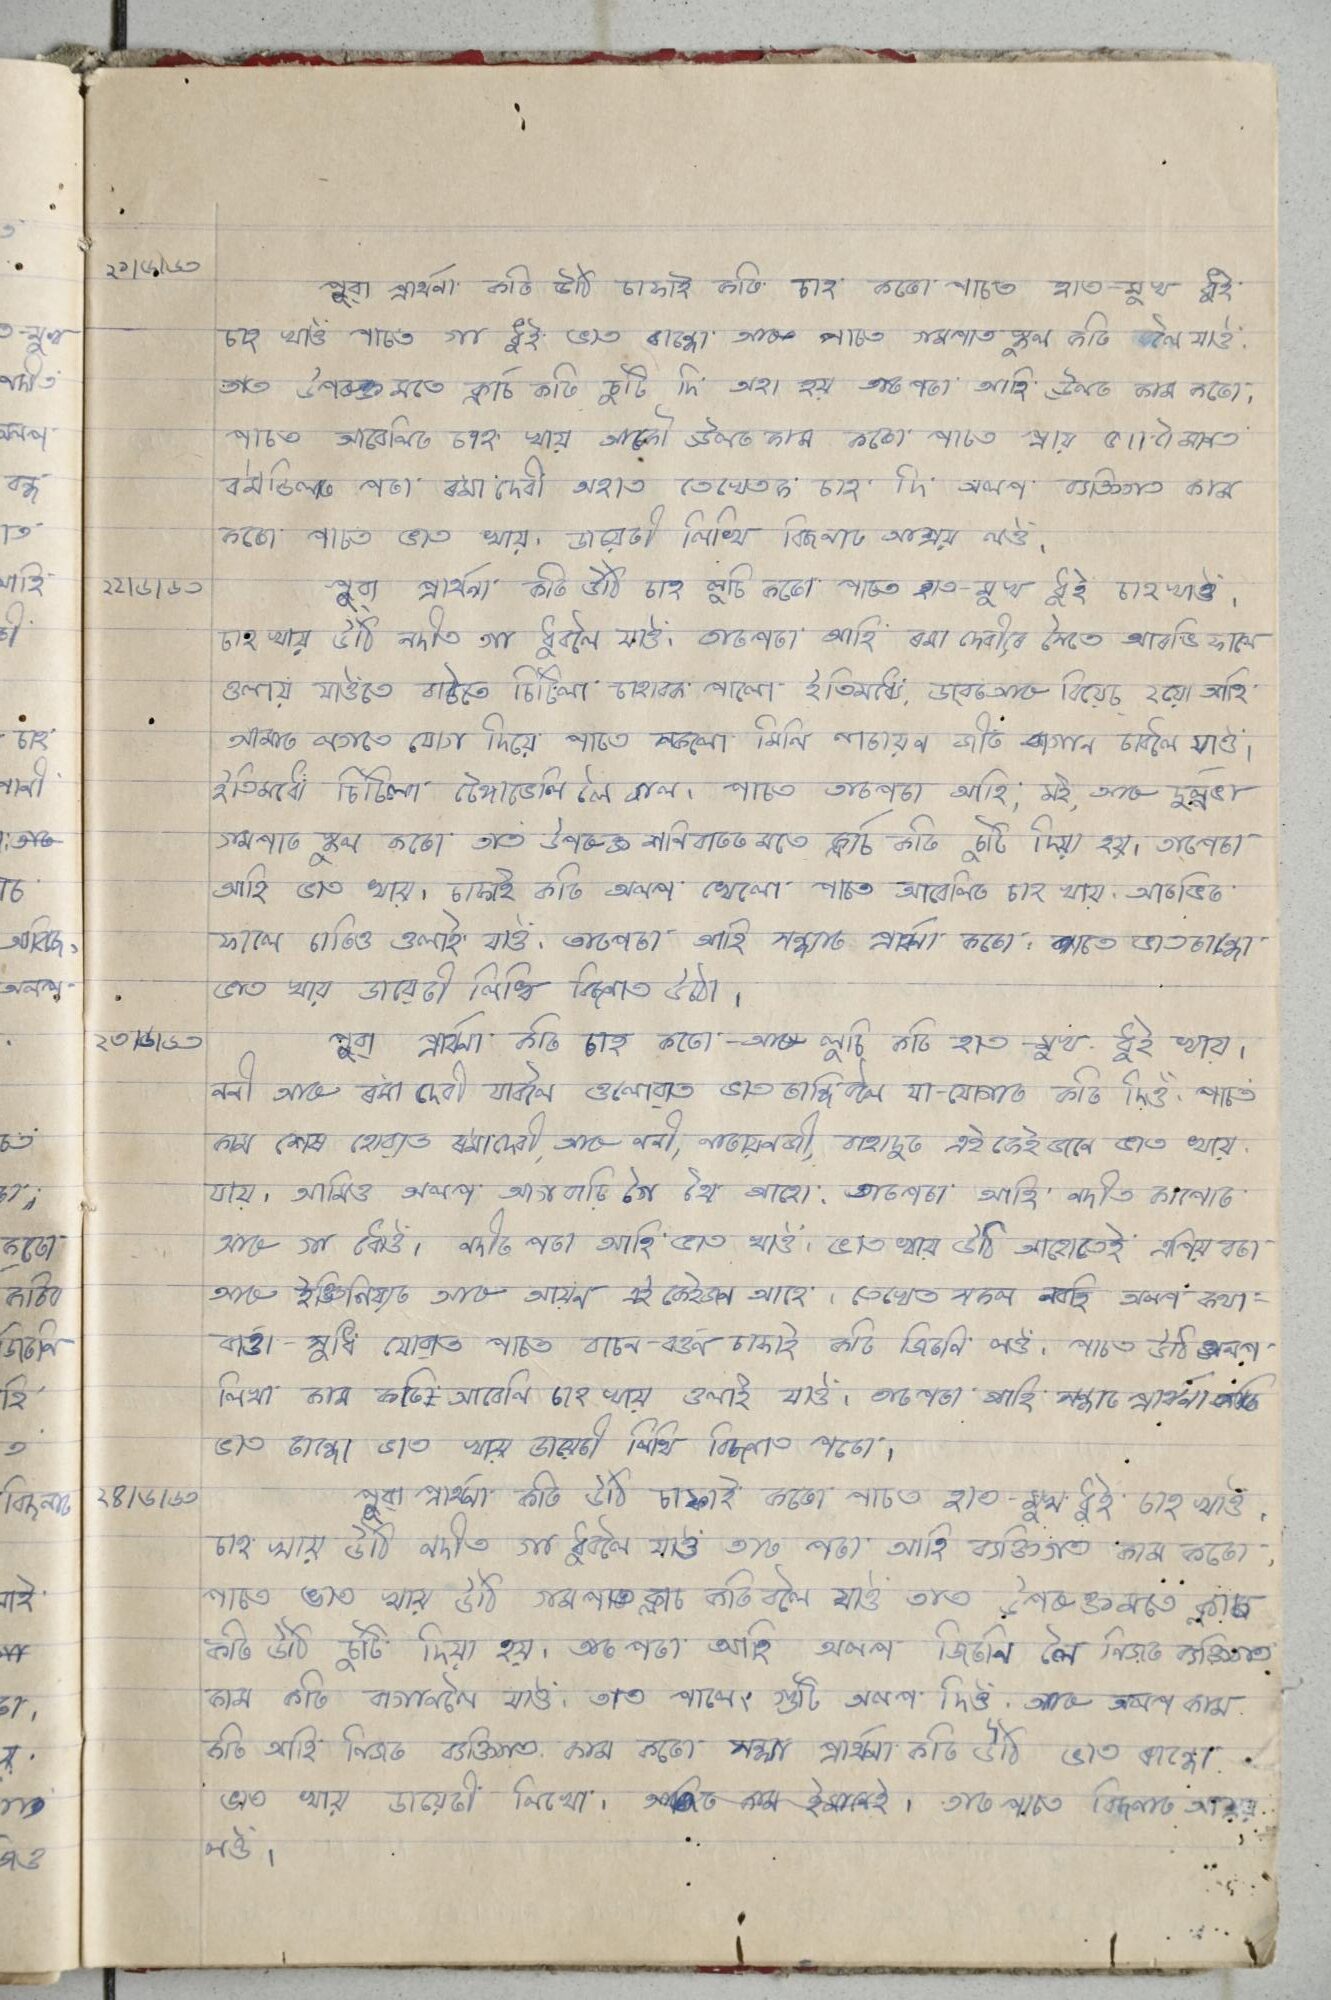 ২১/৬/৬৩
পুৱা প্ৰাৰ্থনা কৰি উঠি চাফাই কৰি চাহ কৰো পাচত হাত-মুখ ধুই
চাহ খাওঁ পাচত গা ধুই ভাত ৰান্ধো আৰু পাচত গমপাত স্কুল কৰি বলৈ যাওঁ.
তাত উপৰুক্ত মতে ক্লাচ কৰি চুটি দি অহা হয় তাৰপৰা আহি উলৰ কাম কৰো,
পাচত আবেলিত চাহ খায় আকৌ উলৰ কাম কৰো পাচত প্ৰায় ৫।। টৈ মানত
পৰা ৰমা দেৱী অহাত তেখেতক চাহ দি অলপ ব্যক্তিগত কাম
কৰো পাচত ভাত খায়. ডায়েৰী লিখি বিচনাত আশ্ৰয় লওঁ,
২২/৬/৬৩
পুৱা প্ৰাৰ্থনা কৰি উঠি চাহ লুচি কৰো পাচত হাত-মুখ ধুই চাহ খাওঁ,
চাহ খায় উঠি নদীত গা ধুবলৈ যাওঁ. তাৰপৰা আহি ৰমা দেৱীৰে সৈতে আৰভি ফালে
ওলায় যাওঁতে বাটতে চিটিলা চাহাবক পালো ইতিমধ্যে, আৰু আহি
আমাৰ লগতে যোগ দিয়ে পাচত সকলো মিলি নাৰায়ন জীৰ বাগান চাবলৈ যাওঁ,
ইতিমধ্যে চিটিলা টেঙ্গাভেলি লৈ গল. পাচত তাৰপৰা আহি, মই, আৰু দুৰ্ল্লভা
গমপাত স্কুল কৰো তাত উপৰুক্ত শনিবাৰৰ মতে ক্লাচ কৰি চুটি দিয়া হয়, তাৰপৰা
আহি ভাত খায়. চাফাই কৰি অলপ খেলো পাচত আবেলিত চাহ খায়. আৰভিৰ
ফালে চাৰিও ওলাই যাওঁ. তাৰপৰা আহি সন্ধ্যাত প্ৰাৰ্থনা কৰো. পাচত ভাত ৰান্ধো
ভাত খায় ডায়েৰী লিখি বিচনাত উঠো,
২৩/৬/৬৩
পুৱা প্ৰাৰ্থনা কৰি চাহ কৰো আৰু লুচি কৰি হাত-মুখ ধুই খায়,
ননী আৰু ৰমা দেৱী যাবলৈ ওলোৱাত ভাত ৰান্ধিবলৈ যা-যোগাৰ কৰি দিওঁ. পাচত
কাম শেষ হোৱাত ৰমাদেৱী, আৰু ননী, নাৰায়নজী, বাহাদুৰ এই কেইজনে ভাত খায়
যায়. আমিও অলপ আগবাঢ়ি থৈ আহো. তাৰপৰা আহি নদীত কাপোৰ
আৰু গা ধোওঁ. নদীৰ পৰা আহি ভাত খাওঁ. ভাত খায় উঠি আহোতেই এপিয়বৰা
আৰু ইঞ্জিনিয়াৰ আৰু আয়ন এই কেইজন আহে. তেখেত সকল নৰহি অলপ কথা-
বাৰ্ত্তা-সুধি যোৱাত পাচত বাচন-বৰ্ত্তন চাফাই কৰি জিৰনি লওঁ. পাচত উঠি অলপ
লিখা কাম কৰি আবেলি চাহ খায় ওলাই যাওঁ. তাৰপৰা আহি সন্ধ্যাত প্ৰাৰ্থনা কৰি
ভাত ৰান্ধো ভাত খায় ডায়েৰী লিখি বিচনাত পৰো,
২৪/৬/৬৩
পুৱা প্ৰাৰ্থনা কৰি উঠি চাফাই কৰো পাচত হাত-মুখ ধুই চাহ খাওঁ,
চাহ খায় উঠি নদীত গা ধুবলৈ যাওঁ তাৰ পৰা আহি ব্যক্তিগত কাম কৰো,
পাচত ভাত খায় উঠি গমপাত ক্লাচ কৰিবলৈ যাওঁ তাত উপৰুক্তমতে ক্লাচ
কৰি উঠি চুটি দিয়া হয়. তাৰপৰা আহি অলপ জিৰনি লৈ নিজৰ ব্যক্তিগত
কাম কৰি বাগানলৈ যাওঁ. তাত পালেং গুটি অলপ দিওঁ. আৰু অলপ কাম
কৰি আহি নিজৰ ব্যক্তিগত কাম কৰো সন্ধ্যা প্ৰাৰ্থনা কৰি উঠি ভাত ৰান্ধো.
ভাত খায় ডায়েৰী লিখো. আজিৰ কাম ইমানেই. তাৰ পাচত বিচনাত আশ্ৰয়
লওঁ,